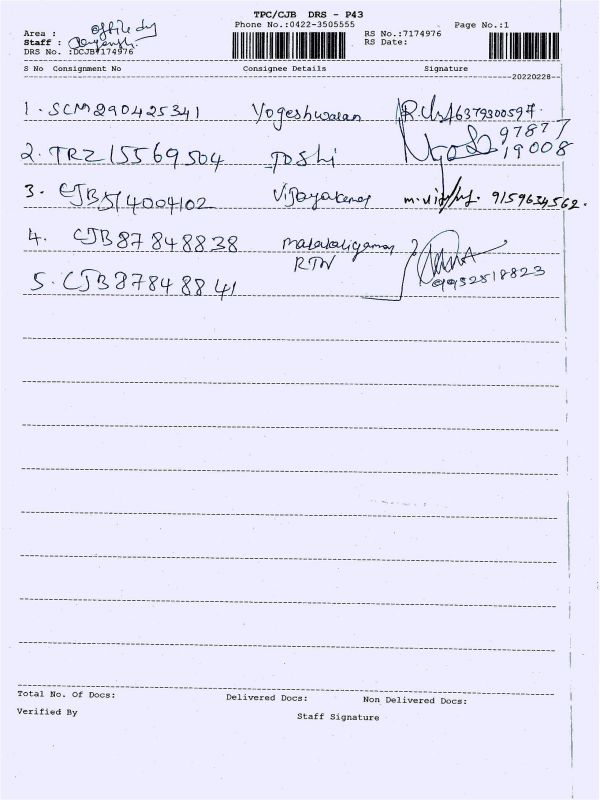 TPC/CJB DRS - P43
Phone No.:0422-3505555
Page No.:1
Area : office dy
Staff :
RS No.:7174976
DRS No.:DCJB7174976
RS Date:
S No Consignment No Consignee Details Signature
20220228
1. SCM290425341 Yogeshwaran 6379300597.
97877
2. TRZ15569504 Joshi 19008
3. CJB514004102 9159634562.
4. CJB87848838
RTN
5. CJB87848841 9952518823
Total No. Of Docs: Delivered Docs: Non Delivered Docs:
Verified By
Staff Signature